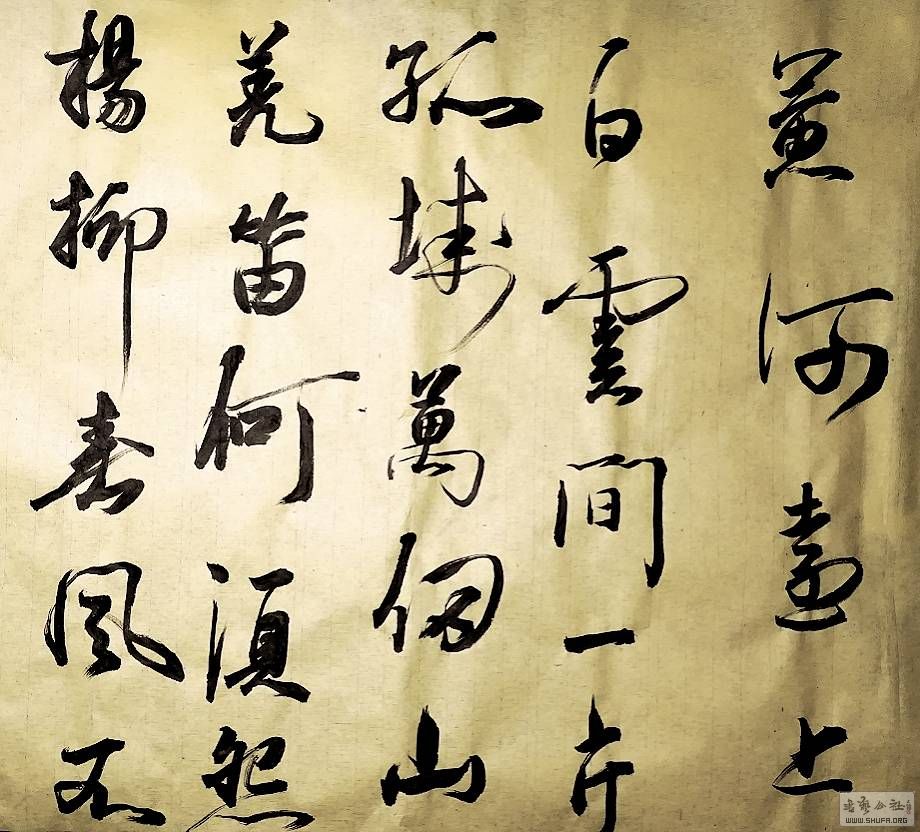 黄河遠上
白雲間一片
孤城萬仞山
羌笛何須怨
楊柳春風不
WWW.SHUFA.ORG